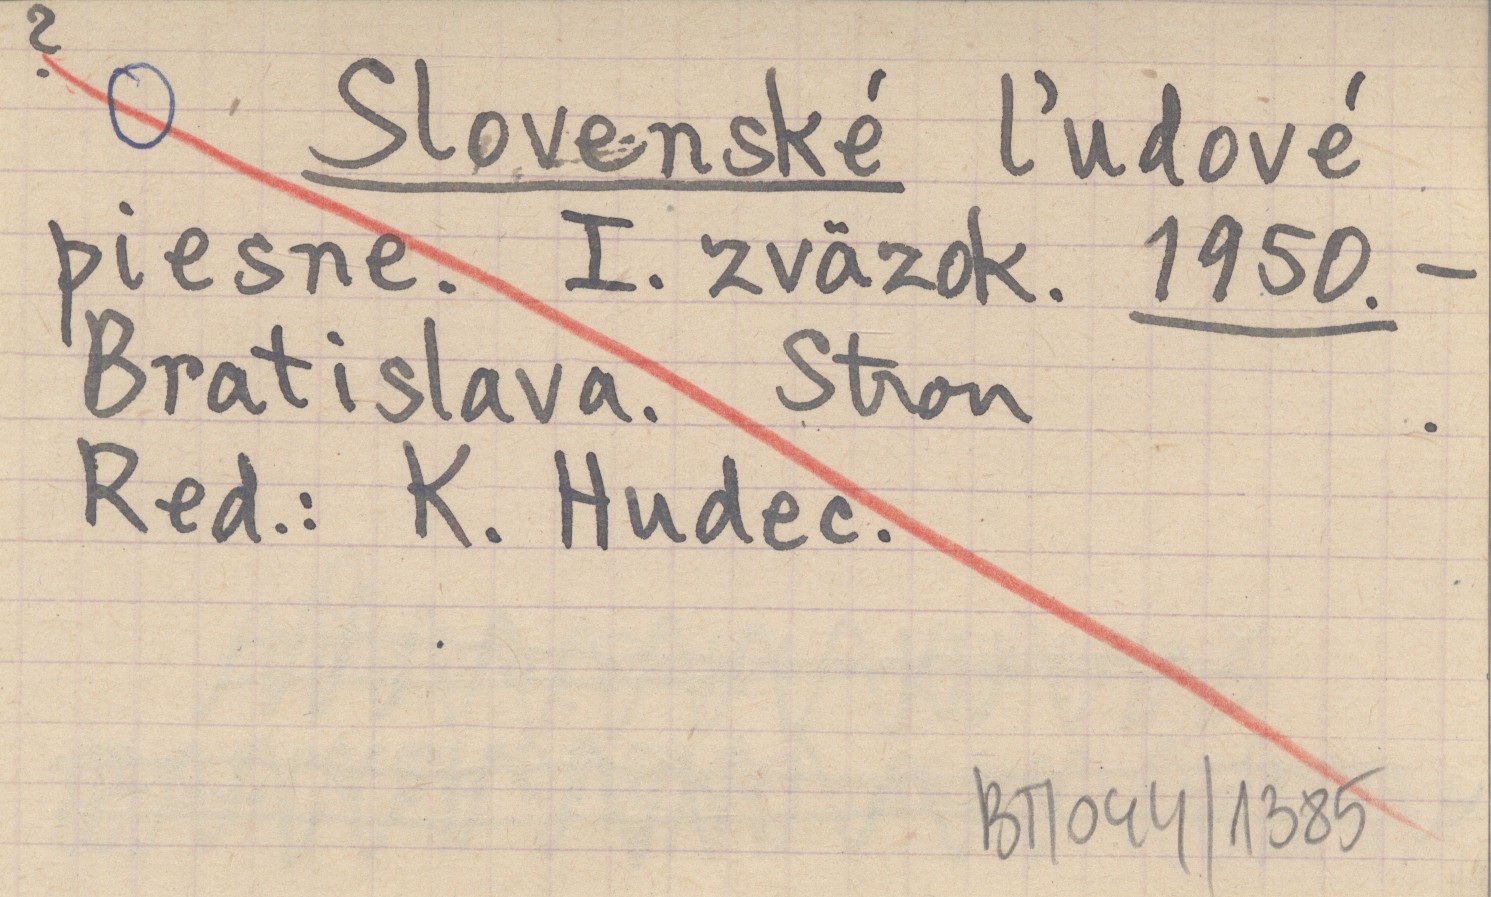 ?
Slovenské ľudové
piesne. I. zväzok. 1950. –
Bratislava. Stron .
Red.: K. Hudec.
ВП 044/1385